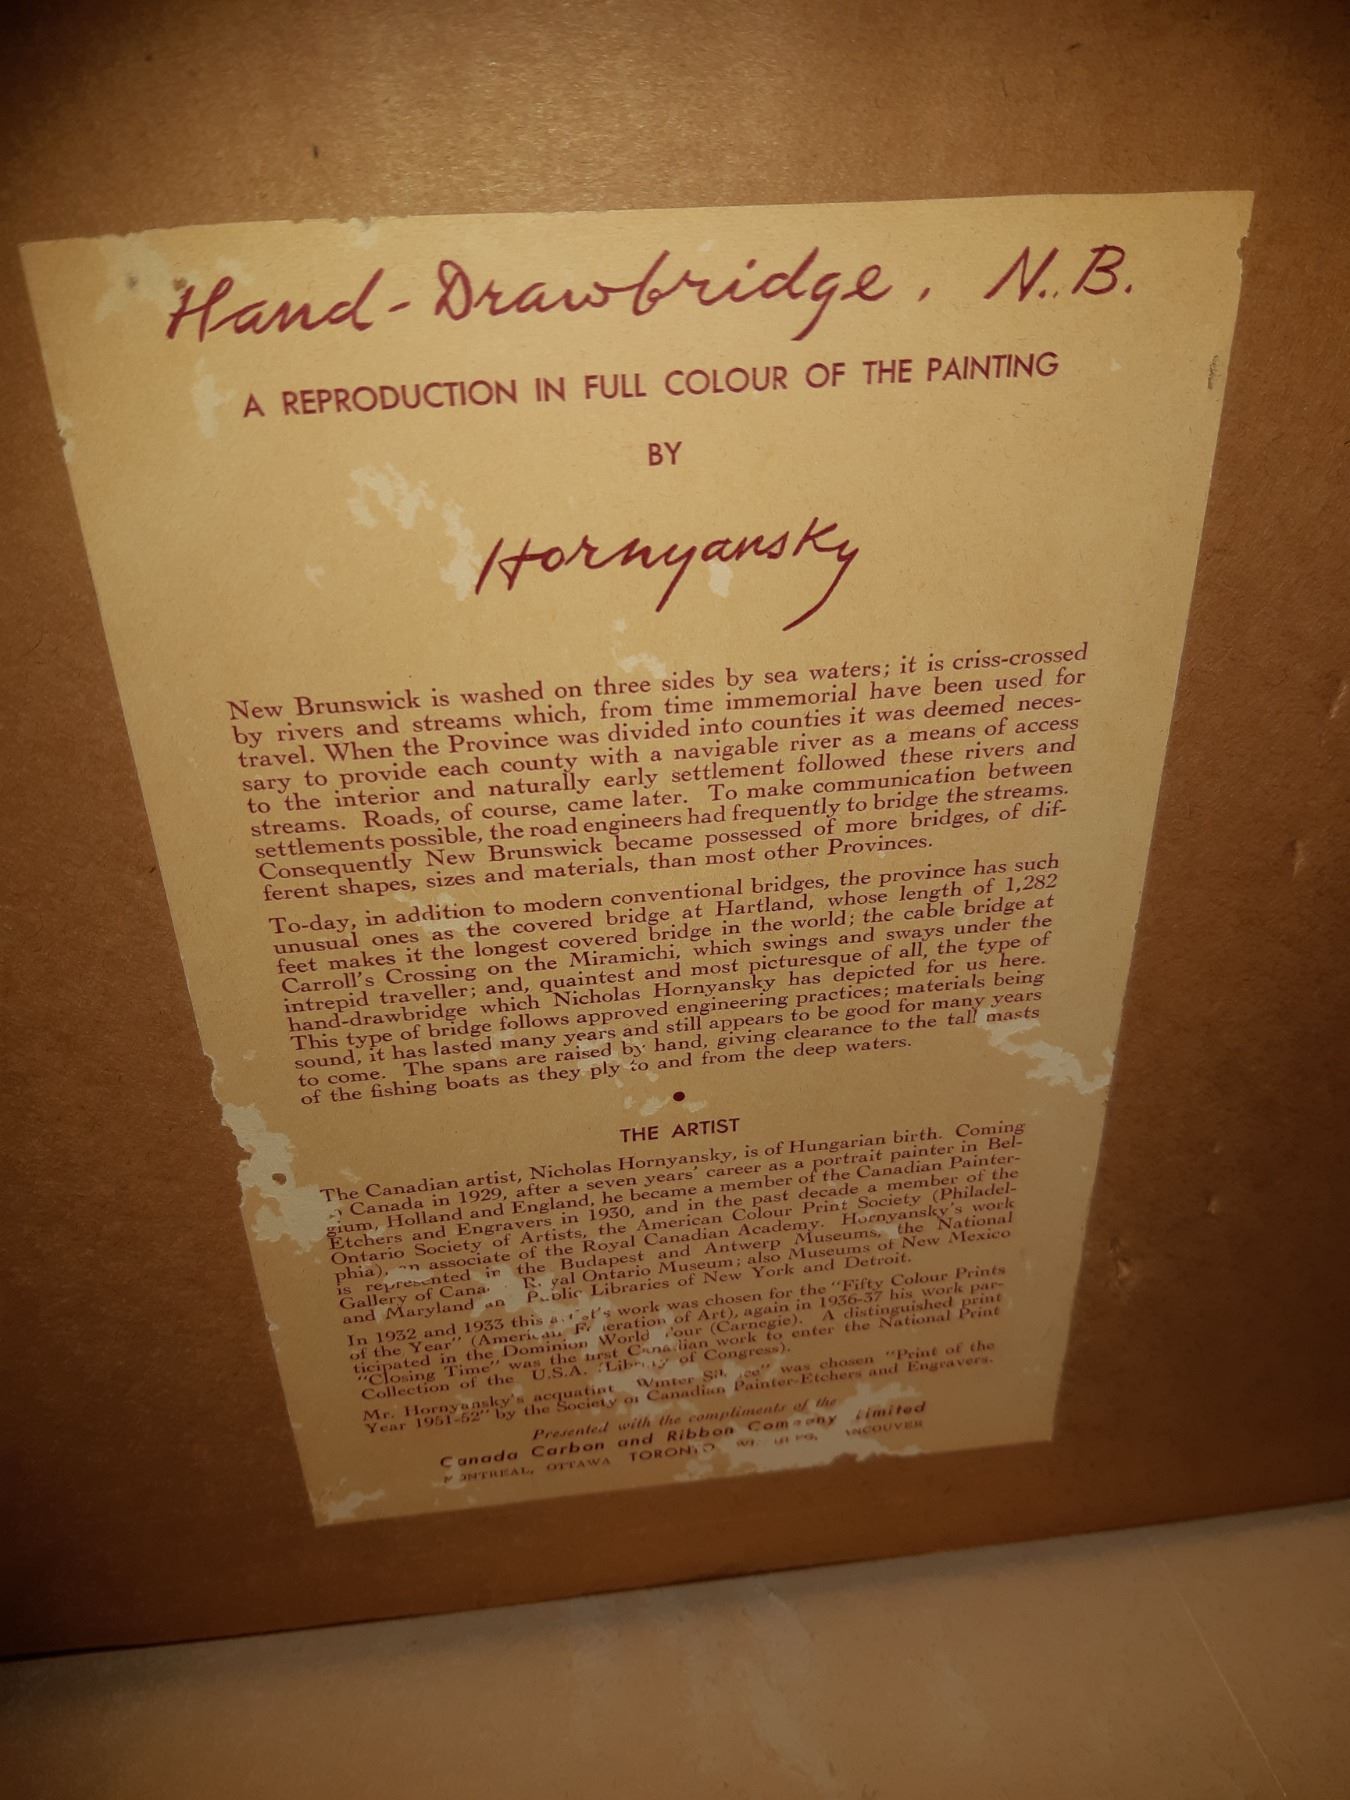 Hand-Drawbridge, N.B.
A REPRODUCTION IN FULL COLOUR OF THE PAINTING
BY
Hornyansky
New Brunswick is washed on three sides by sea waters; it is criss-crossed
by rivers and streams which, from time immemorial have been used for
travel. When the Province was divided into counties it was deemed neces-
sary to provide each county with a navigable river as a means of access
to the interior and naturally early settlement followed these rivers and
streams. Roads, of course, came later. To make communication between
settlements possible, the road engineers had frequently to bridge the streams.
Consequently New Brunswick became possessed of more bridges, of dif-
ferent shapes, sizes and materials, than most other Provinces.
To-day, in addition to modern conventional bridges, the province has such
unusual ones as the covered bridge at Hartland, whose length of 1,282
feet makes it the longest covered bridge in the world; the cable bridge at
Carroll's Crossing on the Miramichi, which swings and sways under the
intrepid traveller; and, quaintest and most picturesque of all, the type of
hand-drawbridge which Nicholas Hornyansky has depicted for us here.
This type of bridge follows approved engineering practices; materials being
sound, it has lasted many years and still appears to be good for many years
to come. The spans are raised by hand, giving clearance to the tall masts
of the fishing boats as they ply to and from the deep waters.
•
THE ARTIST
The Canadian artist, Nicholas Hornyansky, is of Hungarian birth. Coming
Canada in 1929, after a seven years' career as a portrait painter in Bel-
gium, Holland and England, he became a member of the Canadian Painter-
Etchers and Engravers in 1930, and in the past decade a member of the
Ontario Society of Artists, the American Colour Print Society (Philadel-
phia), an associate of the Royal Canadian Academy. Hornyansky's work
is represented in the Budapest and Antwerp Museums, the National
Gallery of Cana Royal Ontario Museum; also Museums of New Mexico
and Maryland an Public Libraries of New York and Detroit.
In 1932 and 1933 this artist's work was chosen for the "Fifty Colour Prints
of the Year" (American Federation of Art), again in 1936-37 his work par-
ticipated in the Dominion World Tour (Carnegie). A distinguished print
"Closing Time" was the first Canadian work to enter the National Print
Collection of the U.S.A. (Library of Congress).
Mr. Hornyansky's acquatint "Winter Silence" was chosen "Print of the
Year 1951-52" by the Society of Canadian Painter-Etchers and Engravers.
Presented with the compliments of the
Canada Carbon and Ribbon Company Limited
MONTREAL, OTTAWA TORONTO WINNIPEG, VANCOUVER